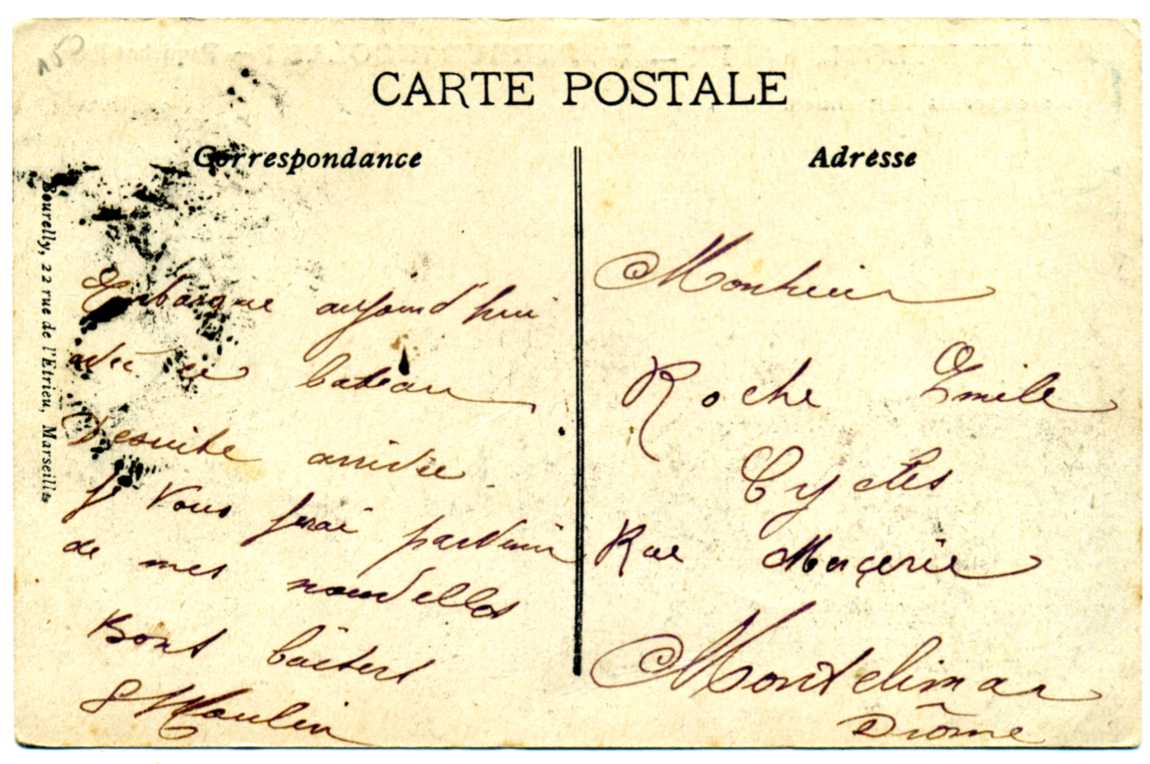 CARTE POSTALE
Correspondance
Embarque aujourd'hui
avec ce bateau
Desuite arrivée
Je vous ferai parvenir
de mes nouvelles
Bons baisers
Moulin
Adresse
Monsieur
Roche Emile
Cycles
Rue Merçerie
Montelimar
Drôme
Bourelly, 22 rue de l'Etrieu, Marseille